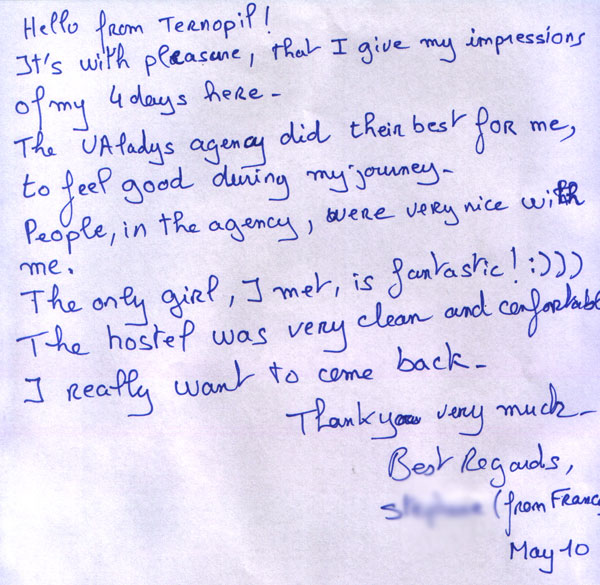 Hello from Ternopil!
It's with pleasure, that I give my impressions
of my 4 days here -
The UAladys agency did their best for me,
to feel good during my journey -
People, in the agency, were very nice with
me.
The only girl, I met, is fantastic! :)))
The hostel was very clean and confortable
I really want to come back -
Thank you very much -
Best Regards,
(from France
May 10